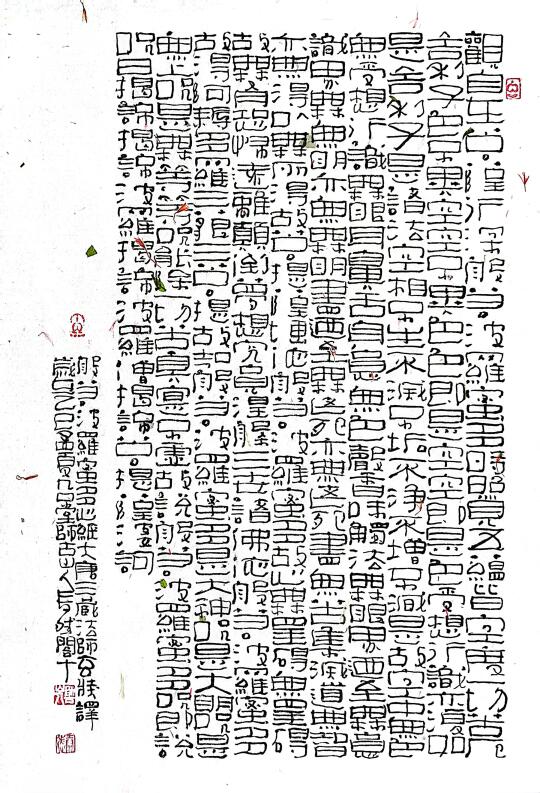 觀自在菩薩行深般若波羅蜜多時照見五蘊皆空度一切苦厄
舍利子色不異空空不異色色即是空空即是色受想行識亦復如
是舍利子是諸法空相不生不滅不垢不淨不增不減是故空中無色
無受想行識無眼耳鼻舌身意無色聲香味觸法無眼界乃至無意
識界無無明亦無無明盡乃至無老死亦無老死盡無苦集滅道無智
亦無得以無所得故菩提薩埵依般若波羅蜜多故心無罣礙無罣礙
故無有恐怖遠離顛倒夢想究竟涅槃三世諸佛依般若波羅蜜多
故得阿耨多羅三藐三菩提故知般若波羅蜜多是大神咒是大明咒是
無上咒是無等等咒能除一切苦真實不虛故說般若波羅蜜多咒即說
咒曰揭諦揭諦波羅揭諦波羅僧揭諦菩提薩婆訶
般若波羅蜜多心經大唐三藏法師玄奘譯